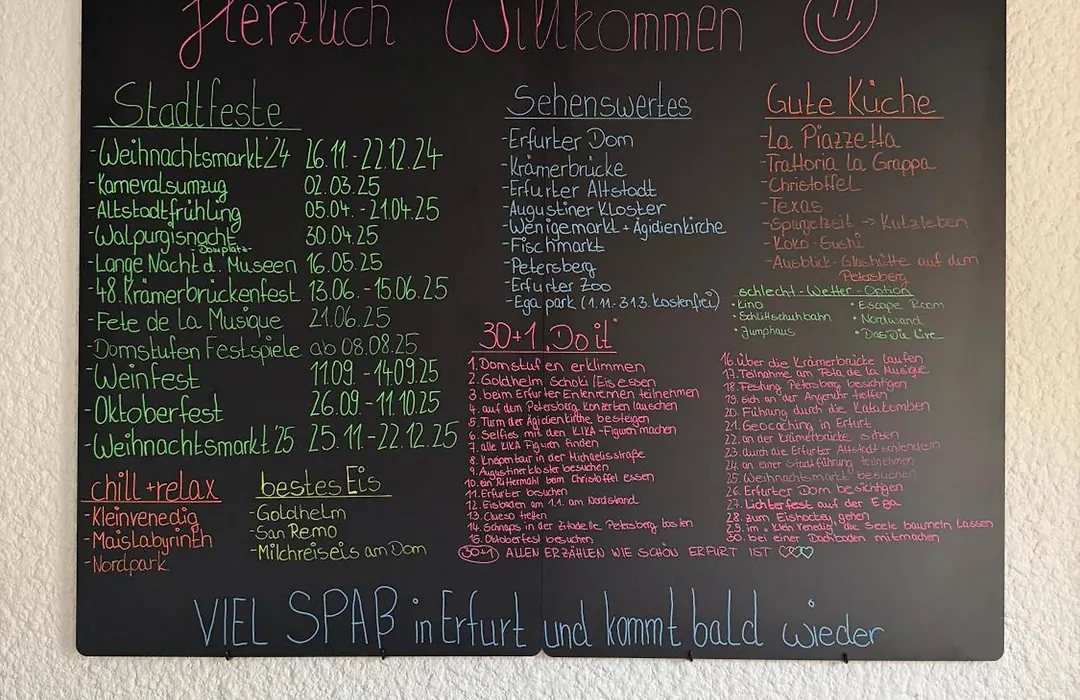 Herzlich Willkommen
Stadtfeste
-Weihnachtsmarkt'24 26.11.-22.12.24
-Karnevalsumzug 02.03.25
-Altstadtfrühling 05.04.-21.04.25
-Walpurgisnacht 30.04.25
-Domplatz-
-Lange Nacht d. Museen 16.05.25
-48. Krämerbrückenfest 13.06.-15.06.25
-Fete de La Musique 21.06.25
-Domstufen Festspiele ab 08.08.25
-Weinfest 11.09.-14.09.25
-Oktoberfest 26.09.-11.10.25
-Weihnachtsmarkt'25 25.11.-22.12.25
chill+relax
-Kleinvenedig
-Maislabyrinth
-Nordpark
bestes Eis
-Goldhelm
-San Remo
-Milchreiseis am Dom
Sehenswertes
-Erfurter Dom
-Krämerbrücke
-Erfurter Altstadt
-Augustiner Kloster
-Wenigemarkt + Ägidienkirche
-Fischmarkt
-Petersberg
-Erfurter Zoo
-Ega park (1.11.-31.3. kostenfrei)
Gute Küche
-La Piazzetta
-Trattoria la Grappa
-Christoffel
-Texas
-Spargelzeit → Kutzleben
-Koko-Sushi
-Ausblick-Glashütte auf dem
Petersberg
schlecht-Wetter-Option
•Kino
•Schlittschuhbahn
•Jumphaus
•Escape Room
•Nordwand
•DasDie Live
30+1 „Do it"
1. Domstufen erklimmen
2. Goldhelm Schoki/Eis essen
3. beim Erfurter Entenrennen teilnehmen
4. auf dem Petersberg Konzerten lauschen
5. Turm der Ägidienkirche besteigen
6. Selfies mit den KIKA-Figuren machen
7. alle KIKA Figuren finden
8. Kneipentour in der Michaelisstraße
9. Augustinerkloster besuchen
10. ein Rittermahl beim Christoffel essen
11. Erfurter besuchen
12. Eisbaden am 1.1. am Nordstrand
13. Clueso treffen
14. Schnaps in der Zitadelle Petersberg kosten
15. Oktoberfest besuchen
16. über die Krämerbrücke laufen
17. Teilnahme am Fete de la Musique
18. Festung Petersberg besichtigen
19. sich an der Angeruhr treffen
20. Führung durch die Katakomben
21. Geocaching in Erfurt
22. an der Krämerbrücke sitzen
23. durch die Erfurter Altstadt schlendern
24. an einer Stadtführung teilnehmen
25. Weihnachtsmarkt besuchen
26. Erfurter Dom besichtigen
27. Lichterfest auf der Ega
28. zum Eishockey gehen
29. im "Klein Venedig" die Seele baumeln lassen
30. bei einer mitmachen
30+1 ALLEN ERZÄHLEN WIE SCHÖN ERFURT IST
VIEL SPAß in Erfurt und kommt bald wieder